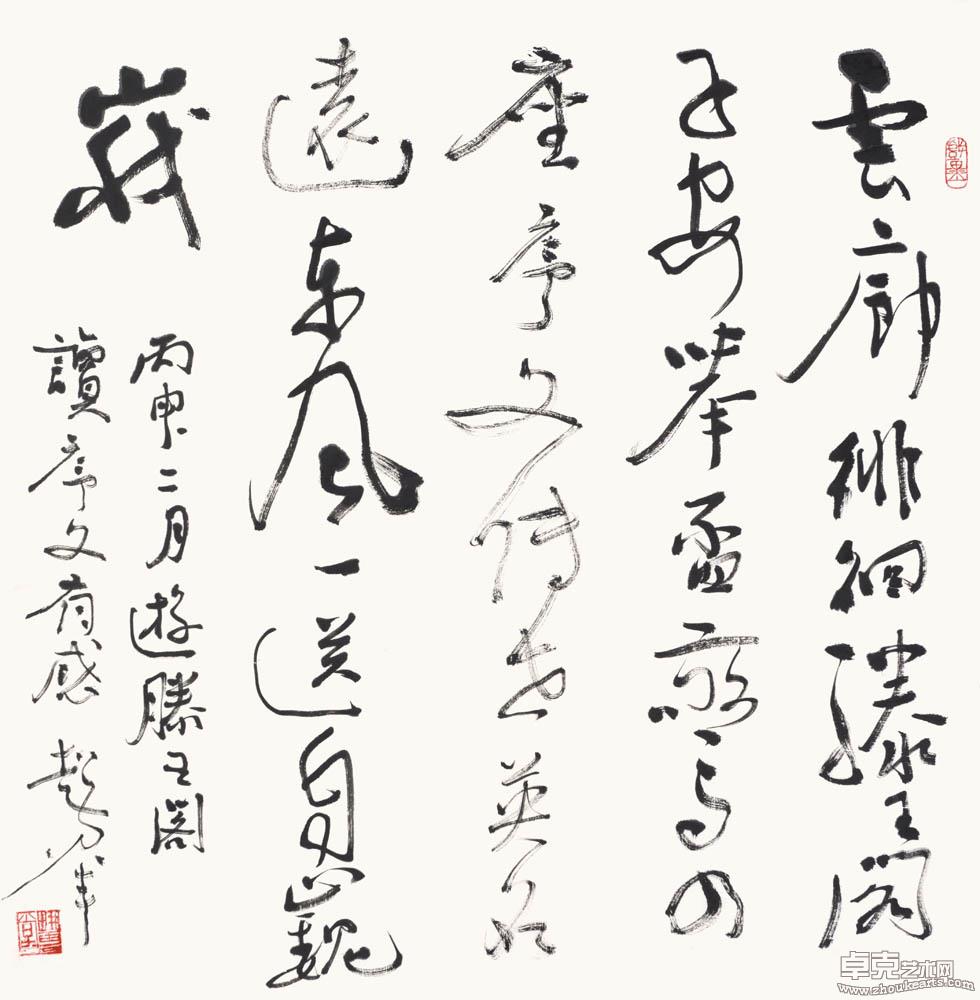 雲廊徘徊滕王閣
子安舉盃驚四
座序文傳世英名
遠东風一送自巍
峨
丙申二月遊滕王閣
讀序文有感 趙
卓克艺术网
www.zhoukearts.com